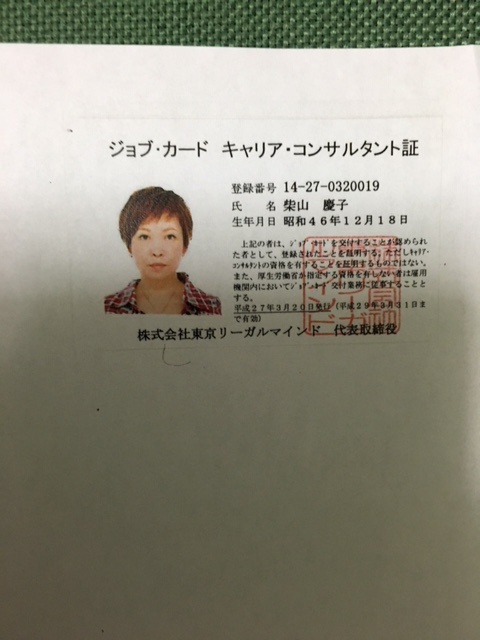 ジョブ・カード キャリア・コンサルタント証
登録番号 14-27-0320019
氏 名 柴山 慶子
生年月日 昭和46年12月18日
上記の者は、ジョブ・カードを交付することが認められ
た者として、登録されたことを証明する。ただしキャリア・
コンサルタントの資格を有することを証明するものではない。
また、厚生労働省が指定する資格を有しない者は雇用
機関内においてジョブ・カード交付業務に従事することと
する。
平成27年3月20日発行(平成29年3月31日ま
で有効)
株式会社東京リーガルマインド 代表取締役